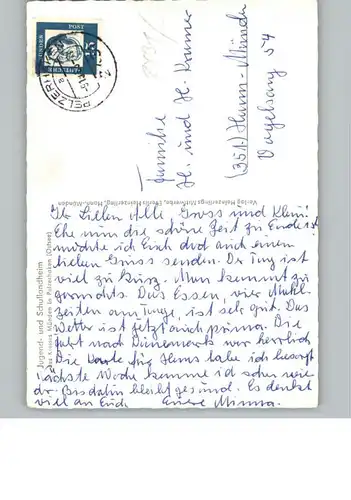 Familie
H. und H. Krämer
(351) Hann.-Münden
Vogelsang 54
Ihr Lieben Alle Gross und Klein!
Ehe nun die schöne Zeit zu Ende ist
möchte ich Euch doch auch einen
lieben Gruss senden. Der Tag ist
viel zu kurz. Man kommt zu
garnichts. Das Essen, vier Mahl-
zeiten am Tage, ist sehr gut. Das
Wetter ist jetzt auch prima. Die
Fahrt nach Dänemark war herrlich
Die Karte für Hans habe ich besorgt
nächste Woche komme ich schon wie-
der. Bis dahin bleibt gesund. Es denkt
viel an Euch Eure Minna.
Jugend- und Schullandheim
des Kreises Münden in Pelzerhaken (Ostsee)